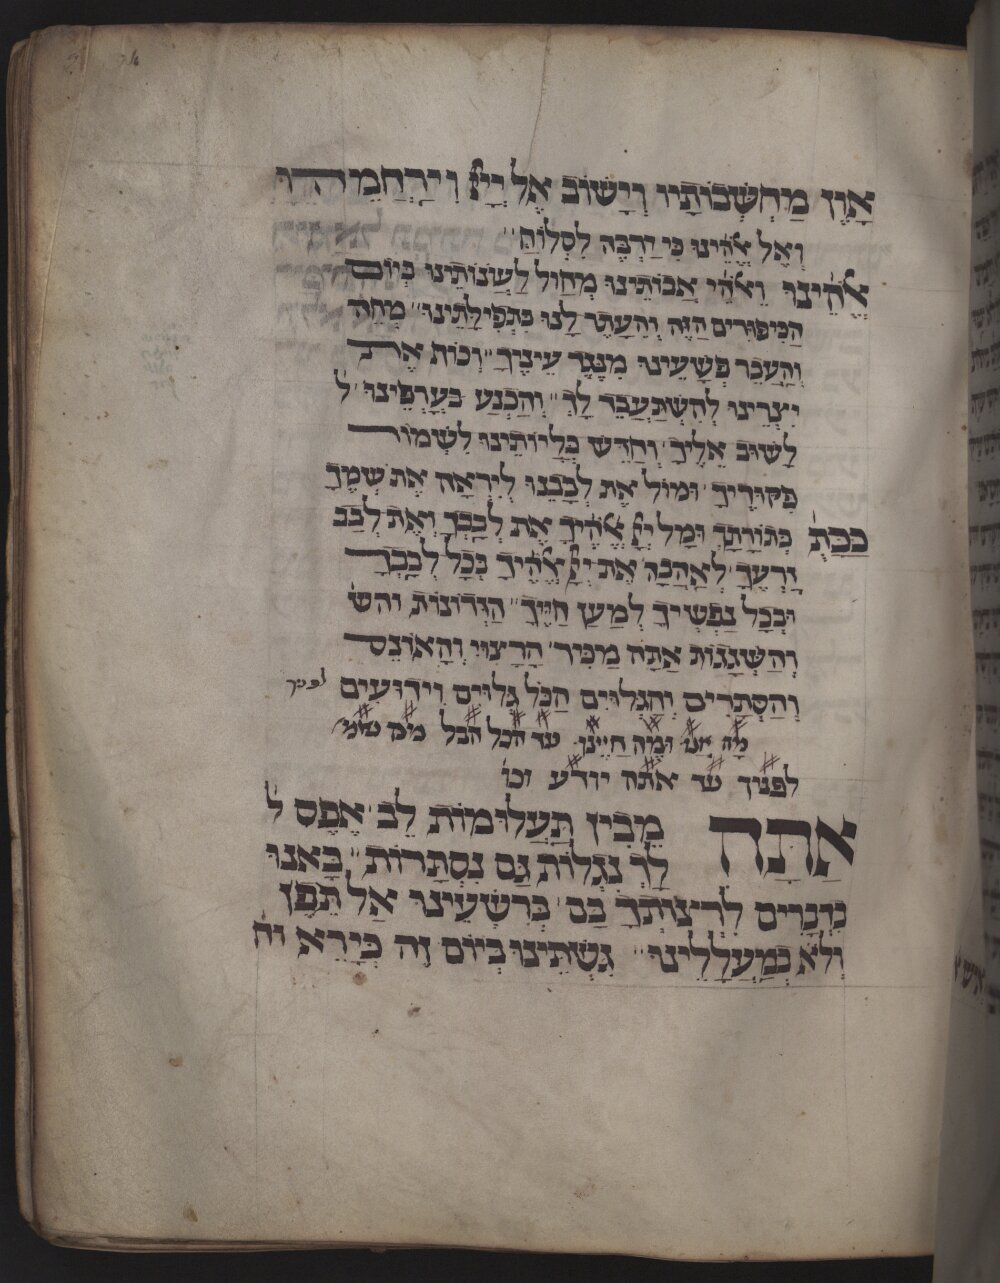 אָוֶן מַחְשְׁבוֹתָיו וְיָשׁוֹב אֶל יְיָ וִירַחֲמֵיהוּ
וְאֶל אֱלֹהֵינוּ כִּי יַרְבֶּה לִסְלוֹחַ
אֱלֹהֵינוּ וֵאלֹהֵי אֲבוֹתֵינוּ מְחוֹל לַעֲוֹנוֹתֵינוּ בְּיוֹם
הַכִּיפּוּרִים הַזֶּה וְהֵעָתֶר לָנוּ בִּתְפִילָתֵינוּ מְחֵה
וְהַעֲבֵר פְּשָׁעֵינוּ מִנֶּגֶד עֵינֶיךָ וְכוֹף אֶת
יִצְרֵינוּ לְהִשְׁתַּעְבֶּד לָךְ וְהַכְנַע בְּעָרְפֵּינוּ ל
לָשׁוּב אֵלֶיךָ וְחַדֵּשׁ כִּלְיוֹתֵינוּ לִשְׁמוֹר
פִּקּוּדֶיךָ וּמוֹל אֶת לְבָבֵנוּ לְיִרְאָה אֶת שְׁמֶךָ
ככת בְּתוֹרָתָךְ וּמָל יְיָ אֱלֹהֶיךָ אֶת לְבָבְךָ וְאֶת לְבַב
זַרְעֶךָ לְאַהֲבָה אֶת יְיָ אֱלֹהֶיךָ בְּכָל לְבָבְךָ
וּבְכָל נַפְשְׁךָ לְמַעַן חַיֶּיךָ הַזְּדוֹנוֹת והש
וְהַשְּׁגָגוֹת אַתָּה מַכִּיר הָרָצוּי וְהָאוֹנֶס
וְהַסְּתָרִים וְהַגְּלוּיִם הַכֹּל גְּלוּיִם וִידוּעִים לפניך
מָה אָנוּ וּמֶה חַיֵּינוּ עד הכל הבל
לפניך עד אתה יודע וכו
אַתָּה מֵבִין תַּעֲלוּמוֹת לֵב אֶפֶס ל
לְךָ נִגְלוֹת גַּם נִסְתָּרוֹת בָּאנוּ
נִדְבָּרִים לְרַצּוֹתְךָ בָּם בְּרִשְׁעֵינוּ אַל תֵּפֶן
וְלֹא בְמַעֲלָלֵינוּ גַּשְׁתֵּינוּ בְּיוֹם זֶה בְּיִרְאָ וח